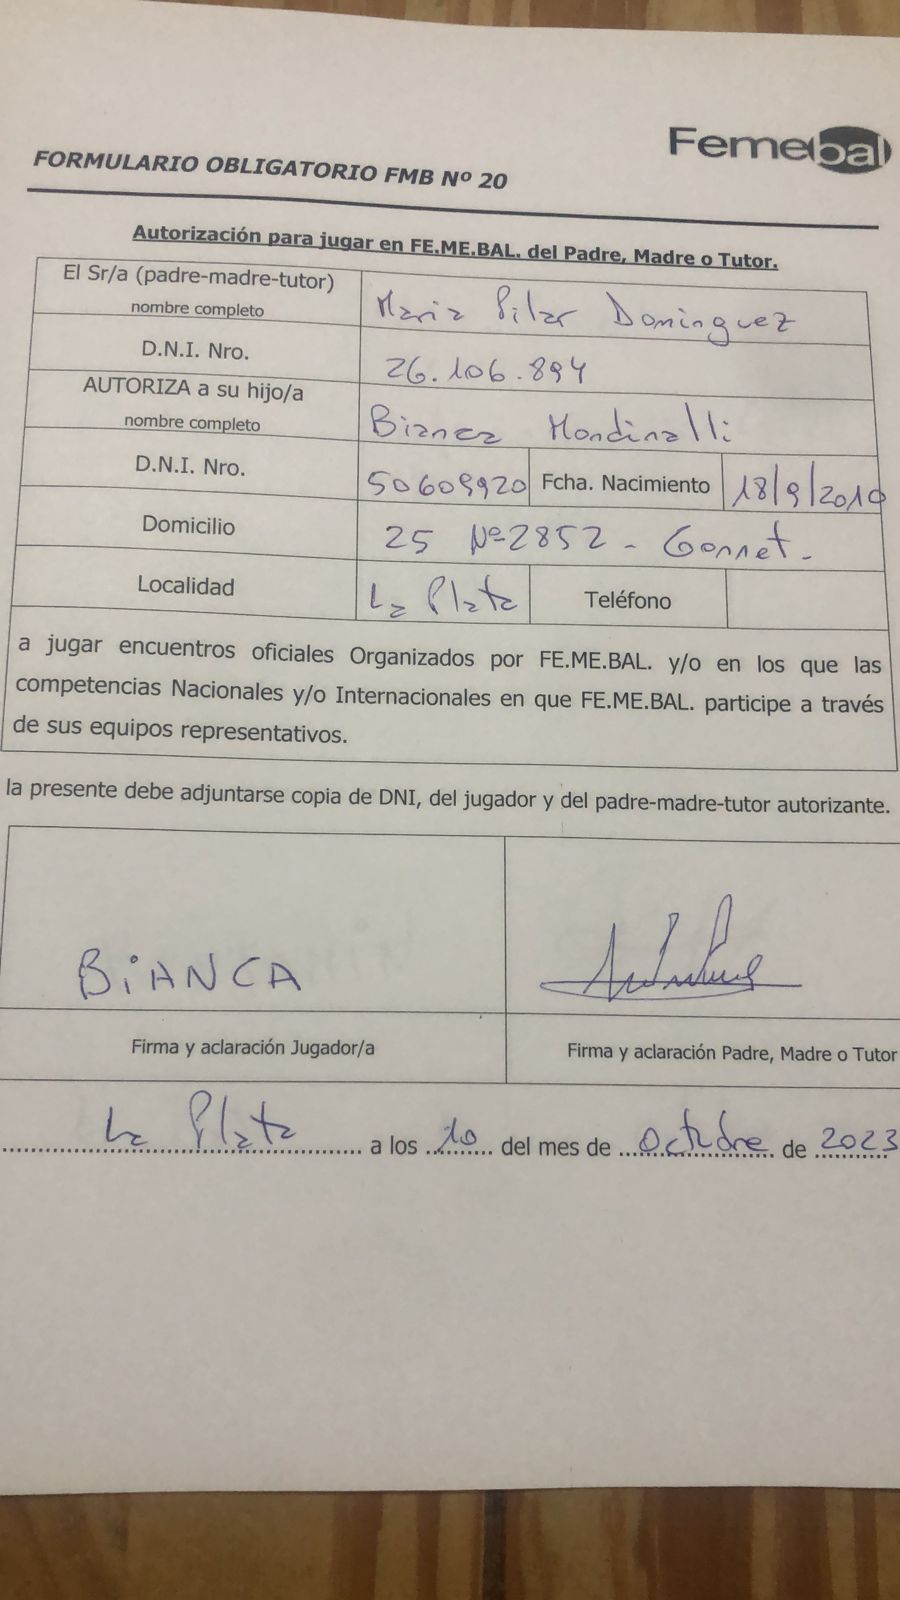 Femebal
FORMULARIO OBLIGATORIO FMB Nº 20
Autorización para jugar en FE.ME.BAL. del Padre, Madre o Tutor.
El Sr/a (padre-madre-tutor)
nombre completo
Maria Pilar Dominguez
D.N.I. Nro.
26.106.894
AUTORIZA a su hijo/a
nombre completo
Bianca Mondinalli
D.N.I. Nro.
50609920
Fcha. Nacimiento
18/9/2010
Domicilio
25 Nº 2852 - Gonnet.
Localidad
La Plata
Teléfono
a jugar encuentros oficiales Organizados por FE.ME.BAL. y/o en los que las
competencias Nacionales y/o Internacionales en que FE.ME.BAL. participe a través
de sus equipos representativos.
la presente debe adjuntarse copia de DNI, del jugador y del padre-madre-tutor autorizante.
BiANCA
Firma y aclaración Jugador/a
Firma y aclaración Padre, Madre o Tutor
La Plata a los 10 del mes de Octubre de 2023